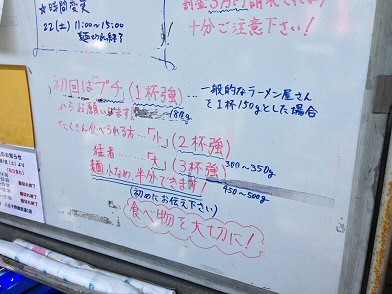 ☆時間変更
22(土) 11:00〜15:00
麺切れ終了
罰金3万円請求されます
十分ご注意下さい!
初回は「プチ」(1杯強)
からお願いします 180g
一般的なラーメン屋さん
を1杯150gとした場合
たくさん食べられる方…「小」(2杯強)
猛者……「大」(3杯強) 300〜350g
麺少なめ、半分できます! 450〜500g
(初めにお伝え下さい)
食べ物を大切に!
のお知らせ